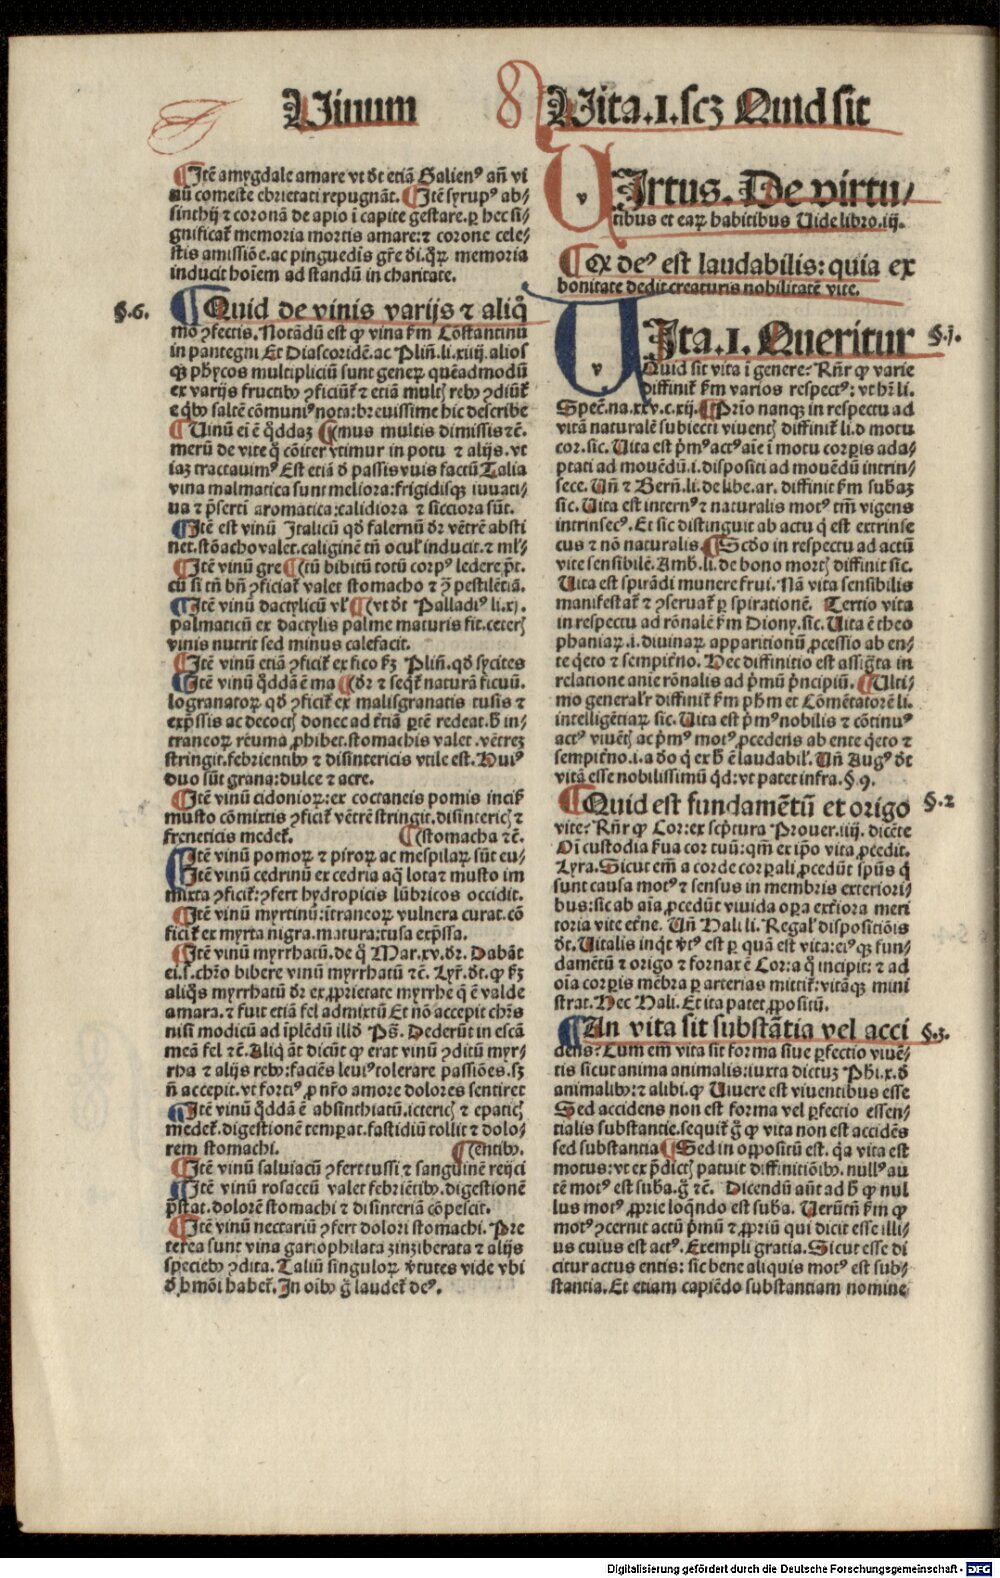 Vinum
Vita.1.scz Quid sit
Itẽ amygdale amare vt dt etiã Galienꝰ añ vi
nũ comeste ebrietati repugnãt. Itẽ syrupꝰ ab/
sinthij ⁊ coronã de apio ĩ capite gestare. ꝑ hec si/
gnificat᷑ memoria mortis amare: ⁊ corone cele/
stis amissiõe. ac pinguedĩs gr̃e dĩ. qꝝ memoria
inducit hoĩem ad standũ in charitate.
§.6.
Quid de vinis varijs ⁊ aliq̃
mõ ꝯfectis. Notãdũ est ꝙ vina ẜm Cõstantinũ
in pantegni Et Diascoridẽ. ac Plin̄. li. xiiij. alios
qꝫ phycos multipliciũ sunt generꝝ quẽadmodũ
ex varijs fructibꝰ ꝯficiũt᷑ ⁊ etiã multꝭ rebꝰ ꝯdiũt᷑
e qbꝰ saltẽ cõmuniꝰ nota: breuissime hic describe
Uinũ ei ẽ q̃ddaz mus multis dimissis ⁊c̃.
merũ de vite q̃ cõiter vtimur in potu ⁊ alijs. vt
iaz tractauimꝰ Est etiã d̃ passis vuis factũ Talia
vina malmatica sunt meliora: frigidisqꝫ iuuati/
ua ⁊ p̃serti aromatica: calidiora ⁊ sicciora sũt.
Itẽ est vinũ Italicũ qd̃ falernũ dr̃ vẽtrẽ absti
net. stõacho valet. caliginẽ tñ oculꝭ inducit. ⁊ ml̃/
Itẽ vinũ gre tũ bibitũ totũ corpꝰ ledere p̃t.
cũ si tñ bñ ꝯficiat᷑ valet stomacho ⁊ ꝯ pestilẽtiã.
Itẽ vinũ dactylicũ vl̃ vt dt Palladiꝰ li. xj.
palmaticũ ex dactylis palme maturis fit. ceterꝭ
vinis nutrit sed minus calefacit.
Itẽ vinũ etiã ꝯficit᷑ ex fico ẜꝫ Plin̄. qd̃ sycites
Itẽ vinũ q̃ddã ẽ ma dr̃ ⁊ seqt᷑ naturã ficuũ.
logranatoꝝ qd̃ ꝯficit᷑ ex malisgranatis tusis ⁊
exp̃ssis ac decoctꝭ donec ad t̃tiã ꝑtẽ redeat. h̃ in/
traneoꝝ reuma ꝓhibet. stomachis valet. vẽtreꝫ
stringit. febrientibꝰ ⁊ disintericis vtile est. Huiꝰ
duo sũt grana: dulce ⁊ acre.
Itẽ vinũ cidonioꝝ: ex coctaneis pomis incisꝭ
musto cõmixtis ꝯficit᷑ vẽtrẽ stringit. disinterichꝭ ⁊
freneticis medet᷑. stomacha ⁊c̃.
Itẽ vinũ pomoꝝ ⁊ piroꝝ ac mespilaꝝ sũt eu/
Itẽ vinũ cedrinũ ex cedria aq̃ lota ⁊ musto im
mixta ꝯficit᷑: ꝯfert hydropicis lũbricos occidit.
Itẽ vinũ myrtinũ: ĩtraneoꝝ vulnera curat. cõ
ficit᷑ ex myrta nigra. matura: tusa exp̃ssa.
Itẽ vinũ myrrhatũ. de q̃ Mar. xv. dr̃. Dabãt
ei. s. chr̃o bibere vinũ myrrhatũ ⁊c̃. Lyr̃. dt. ꝙ ẜꝫ
aliq̃s myrrhatũ dr̃ ex ꝓprietate myrrhe q̃ ẽ valde
amara. ⁊ fuit etiã fel admixtũ Et nõ accepit chr̃s
nisi modicũ ad ĩplẽdũ illd̃ Ps̃. Dederũt in escã
meã fel ⁊c̃. Aliq̃ ãt dicũt ꝙ erat vinũ ꝯditũ myr/
rha ⁊ alijs rebꝰ: faciẽs leuiꝰ tolerare passiões. sꝫ
ñ accepit. vt fortiꝰ ꝓ nr̃o amore dolores sentiret
Itẽ vinũ q̃ddã ẽ absinthiatũ. icterichꝭ ⁊ epaticꝭ
medet᷑. digestionẽ temꝑat. fastidiũ tollit ⁊ dolo/
rem stomachi. entibꝰ.
Itẽ vinũ saluiacũ ꝯfert tussi ⁊ sanguinẽ reijci
Itẽ vinũ rosaceũ valet febriẽtibꝰ. digestionẽ
p̃stat. dolorẽ stomachi ⁊ disinteriã cõpescit.
Itẽ vinũ nectariũ ꝯfert dolori stomachi. Pre
terea sunt vina gariophilata zinziberata ⁊ alijs
speciebꝰ ꝯdita. Taliũ singuloꝝ v̓tutes vide vbi
d̃ hmõi habet᷑. In oĩbꝰ g̃ laudet᷑ deꝰ.
v
Irtus. De virtu/
tibus et eaꝝ habitibus Vide libro. iij.
Ox deꝰ est laudabilis: quia ex
bonitate dedit creaturis nobilitatẽ vite.
v
Ita.1. Queritur
§.j.
Quid sit vita ĩ genere: Rñr ꝙ varie
diffinit᷑ ẜm varios respectꝰ: vt hr̃ li.
Specẽ. na. xxv. c. xij. Prio nanqꝫ in respectu ad
vitã naturalẽ subiecti viuentꝭ diffinit᷑ li. d motu
cor. sic. Vita est p̃mꝰ actꝰ aĩe ĩ motu corꝑis ada/
ptati ad mouẽdũ. i. dispositi ad mouẽdũ intrin/
sece. Uñ ⁊ Bern̄. li. de libe. ar. diffinit ẜm subaꝫ
sic. Uita est internꝰ ⁊ naturalis motꝰ tm̃ vigens
intrinsecꝰ. Et sic distinguit ab actu q̃ est extrinse
cus ⁊ nõ naturalis. Scd̃o in respectu ad actũ
vite sensibilẽ. Amb. li. de bono mortꝭ diffinit sic.
Uita est spirãdi munere frui. Nã vita sensibilis
manifestat᷑ ⁊ ꝯseruat᷑ ꝑ spirationẽ. Tertio vita
in respectu ad rõnalẽ ẜm Diony. sic. Vita ẽ theo
phaniaꝝ. i. diuinaꝝ apparitionũ ꝓcessio ab en/
te q̃eto ⁊ sempit̃no. Hec diffinitio est assig̃ta in
relatione anie rõnalis ad p̃mũ p̃ncipiũ. Ulti/
mo general̓r diffinit᷑ ẜm phm̃ et Cõmẽtatorẽ li.
intelligẽtiaꝝ sic. Uita est p̃mꝰ nobilis ⁊ cõtinuꝰ
actꝰ viuẽtꝭ ac p̃mꝰ motꝰ ꝓcedens ab ente q̃eto ⁊
sempit̃no. i. a dõ q̃ ex h̃ ẽ laudabil̓. Uñ Augꝰ dt
vitã esse nobilissimũ qd̃: vt patet infra. §. 9.
Quid est fundamẽtũ et origo
§.2
vite: Rñr ꝙ Cor: ex scp̃tura Prouer. iiij. dicẽte
Oĩ custodia ẜua cor tuũ: qm̃ ex ip̃o vita ꝓcedit.
Lyra. Sicut em̃ a corde corꝑali ꝓcedũt spũs q̃
sunt causa motꝰ ⁊ sensus in membris exteriori/
bus: sic ab aĩa ꝓcedũt viuida oꝑa ext̃iora meri
toria vite et̃ne. Uñ Hali li. Regal̓ dispositiõis
dt. Uitalis inqt v̓tꝰ est ꝑ quã est vita: eiꝰqꝫ fun/
damẽtũ ⁊ origo ⁊ fornax ẽ Cor: a q̃ incipit: ⁊ ad
oĩa corꝑis mẽbra ꝑ arterias mittit᷑: vitãqꝫ mini
strat. Hec Hali. Et ita patet ꝓpositũ.
An vita sit substãtia vel acci
§.3.
dens? Cum em̃ vita sit forma siue ꝑfectio viuẽ/
tis sicut anima animalis: iuxta dictuꝫ Phi. x. d̃
animalibꝰ: ⁊ alibi. ꝙ Viuere est viuentibus esse
Sed accidens non est forma vel ꝑfectio essen/
tialis substantie. sequit᷑ g̃ ꝙ vita non est accidẽs
sed substantia Sed in oppositũ est. q̃a vita est
motus: vt ex p̃dictꝭ patuit diffinitiõibꝰ. nullꝰ au
tẽ motꝰ est suba. g̃ ⁊c̃. Dicendũ aũt ad h̃ ꝙ nul
lus motꝰ ꝓprie loq̃ndo est suba. Uerũtñ ẜm ꝙ
motꝰ ꝯcernit actũ p̃mũ ⁊ ꝓpriũ qui dicit esse illi/
us cuius est actꝰ. Exempli gratia. Sicut esse di
citur actus entis: sic bene aliquis motꝰ est sub/
stantia. Et etiam capiẽdo substantiam nomine
Digitalisierung gefördert durch die Deutsche Forschungsgemeinschaft - DFG